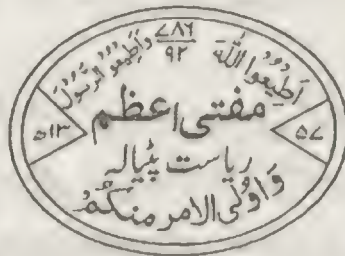 ۷۸۶
۹۲
اَطِیعُوا اللّٰهَ وَاَطِیعُوا الرَّسُوْلَ
مفتی اعظم
۵۷
۵۱۳
ریاست پٹیالہ
وَاُولی الامر منکُمْ